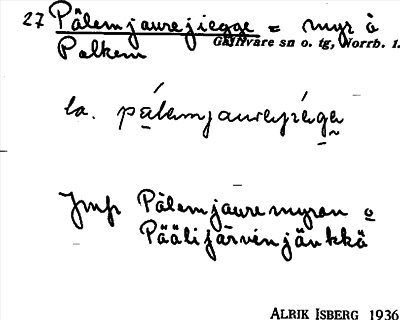 27 Pälemjaurejiegge = myr å
Palkem
Gällivare sn o. tg, Norrb. l.
la. pálemjaurejiéga
Jmf Pälemjauremyran o
Päälijärvenjänkkä
ALRIK ISBERG 1936